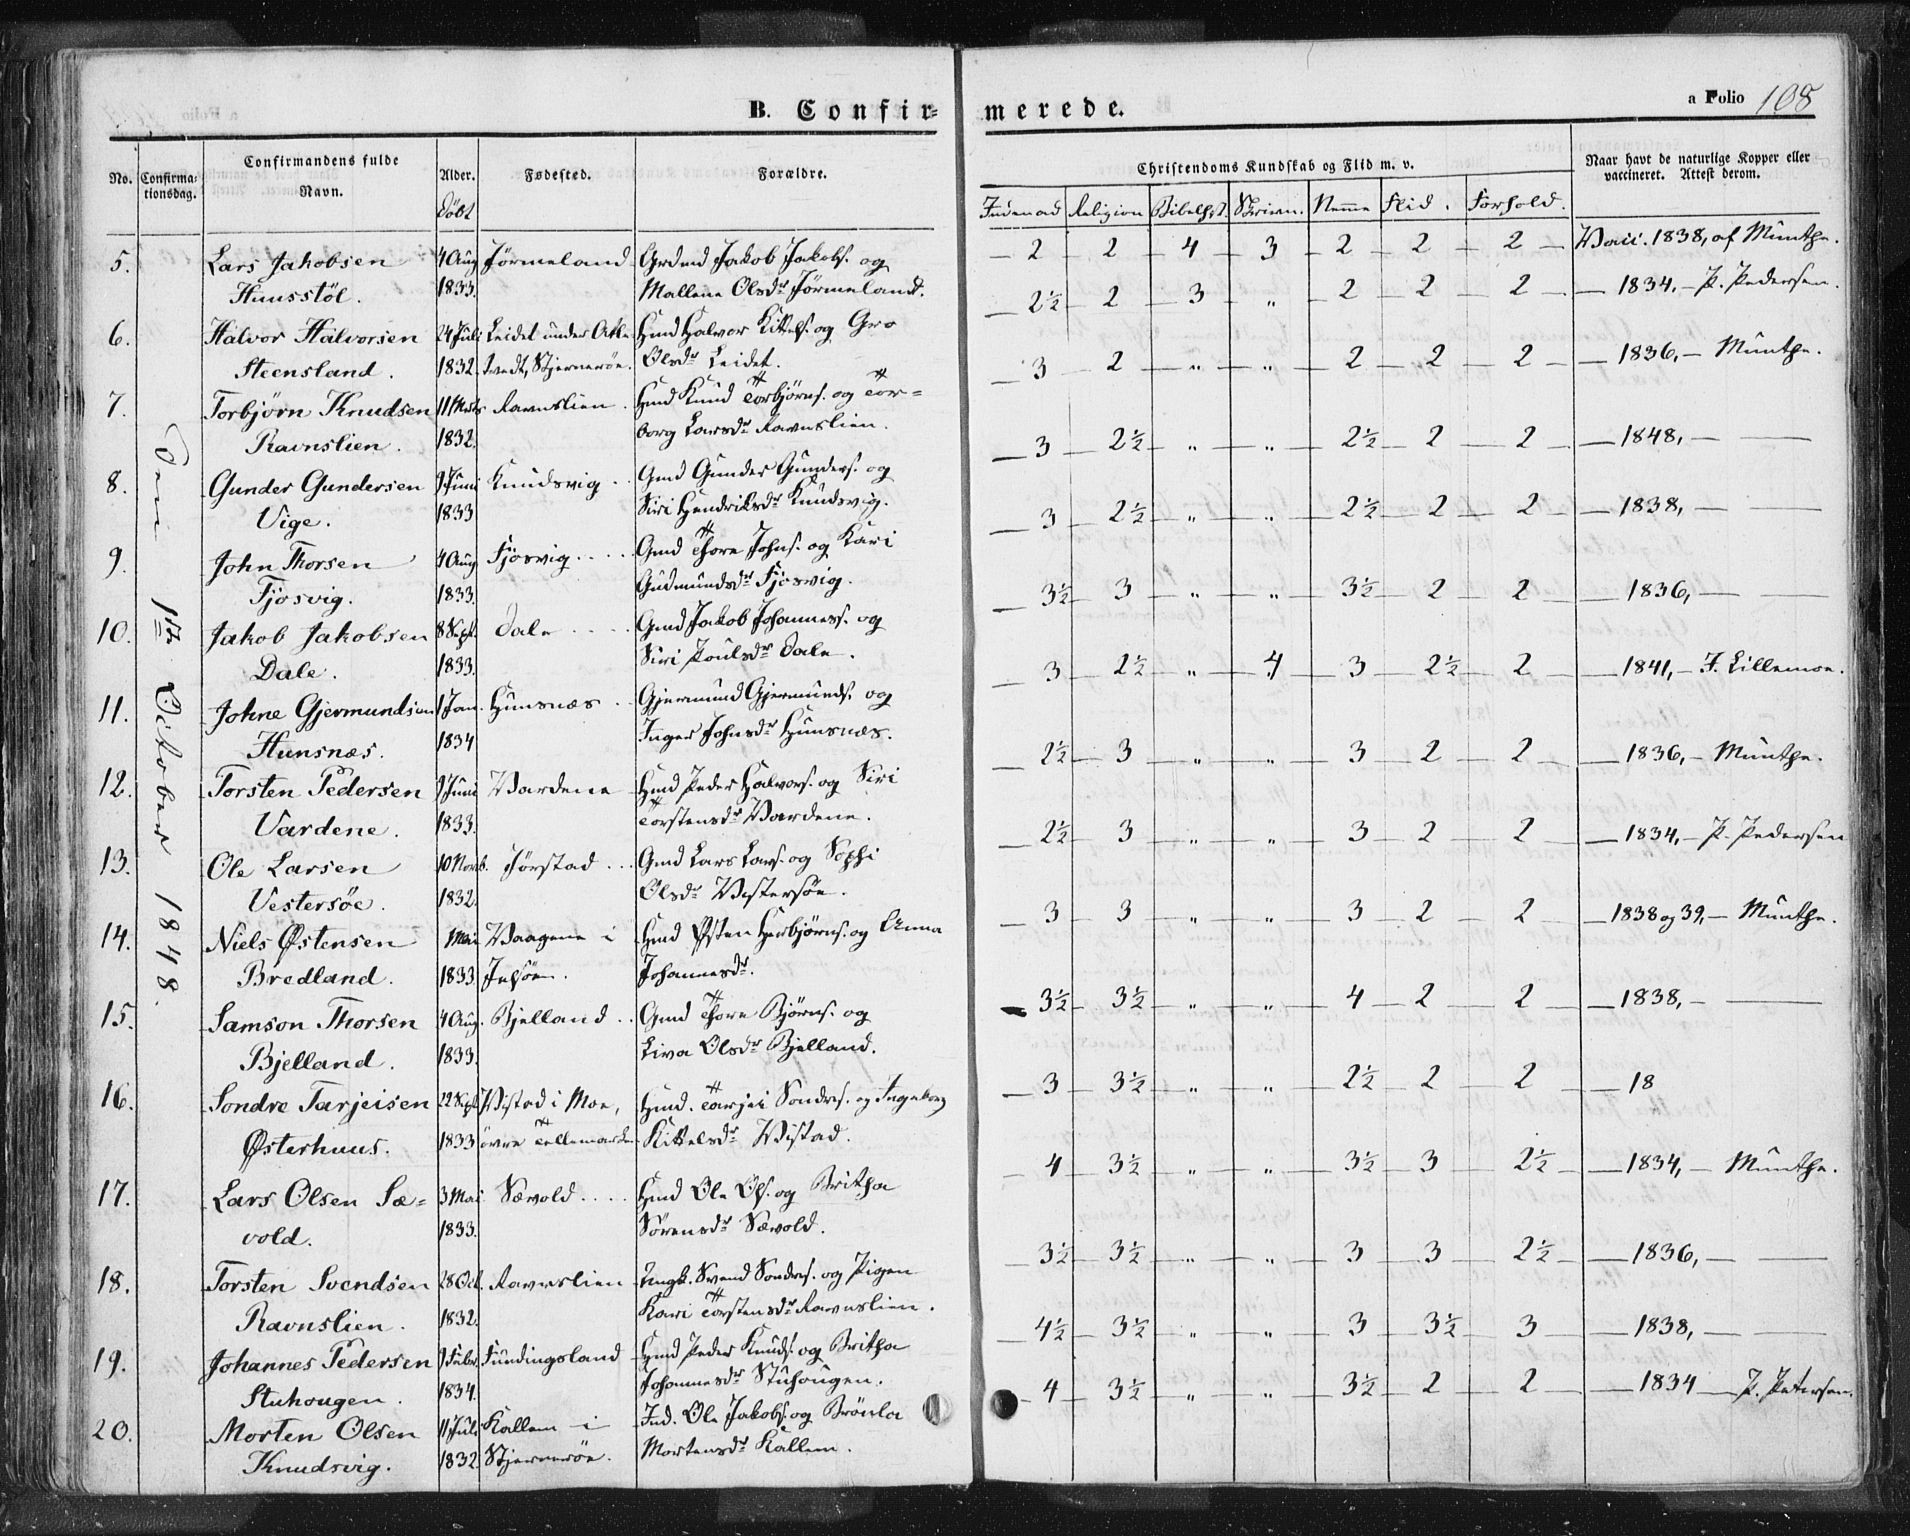 B. Confir-
merede.
a Folio 108
No.
Confirma-
tionsdag.
Confirmandens fulde
Navn.
Alder.
Døbt
Fødested.
Forældre.
Christendoms Kundskab og Flid m. v.
Naar havt de naturlige Kopper eller
vaccineret. Attest derom.
Indenad Religion Bibelhist. Skrivn. Nemme Flid. Forhold.
Den 1ste October 1848.
5. Lars Jakobsen 4 Aug Jørmeland Grdmd Jakob Jakobs. og
Huusstöl. 1833. Mallene Olsdr Jørmeland.
— 2 — 2 — 4 — 3 — 2 — 2 — 2 — Vacc. 1838, af Münthe.
6. Halvor Halvorsen 24 Juli Leidet under Hmd Halvor Kittels. og Gro
Steensland. 1832. Stjernerøe. Olsdr Leidet.
— 2½ — 2 — 3 — „ — 2 — 2 — 2 — — 1834, — P. Pedersen.
7. Torbjørn Knudsen 11 Marts Ravnslien. Hmd Knud Torbjörns. og Tor-
Ravnslien. 1832. borg Larsdr Ravnslien.
— 3 — 2 — „ — „ — 2 — 2 — 2 — 1836, — Münthe.
8. Gunder Gundersen 9 Juni Knudsvig Gmd Gunder Gunders. og
Vige. 1833 Siri Hendriksdr Knudsvig.
— 3 — 2½ — „ — „ — 2½ — 2 — 2 — 1848, — —
9. John Thorsen 4 Aug Fjosvig Gmd Thore Johns. og Kari
Fjosvig. 1833. Gudmundsdr Fjosvig.
— 3 — 2½ — „ — „ — 2½ — 2 — 2 — 1838, — —
10. Jakob Jakobsen 8 Sept. Dale Gmd Jakob Johanness. og
Dale. 1833. Siri Poulsdr Dale.
— 3½ — 3 — „ — „ — 3½ — 2 — 2 — 1836, — —
11. Johne Gjermundsen 1 Jan. Hunsnæs Gjermund Gjermunds. og
Hunsnæs. 1834 Inger Johnsdr Hunsnæs.
— 3 — 2½ — „ — 4 — 3 — 2½ — 2 — 1841, — J. Lillemoe.
12. Torsten Pedersen 9 Juni Vardene Hmd Peder Halvors. og Siri
Vardene. 1833. Torstensdr Vardene.
— 2½ — 3 — „ — „ — 3 — 2 — 2 — 1836, — Münthe.
13. Ole Larsen 10 Novb. Jørstad Gmd Lars Lars. og Sophi
Vestersöe. 1832. Olsdr Vestersöe.
— 2½ — 3 — „ — „ — 3 — 2 — 2 — 1834, — P. Pedersen
14. Niels Østensen Mai Vaagene i Hmd Østen Herbjörns. og Anna
Bredland. 1833. Jelsöe. Johannesdr.
— 3 — 3 — „ — „ — 3 — 2 — 2 — 1838 og 39, — Münthe.
15. Samson Thorsen 4 Aug. Bjelland Gmd Thore Björns. og
Bjelland. 1833. Liva Olsdr Bjelland.
— 3½ — 3½ — „ — „ — 4 — 2 — 2 — 1838, — —
16. Sondre Tarjeisen 22 Sept. Vistad i Moe, Hmd. Tarjei Sondres. og Ingeborg
Østerhuus. 1833 övre Tellemarken Kittelsdr Vistad.
— 3 — 3½ — „ — „ — 2½ — 2 — 2 — 18
17. Lars Olsen Sæ- 3 Mai Sævold Hmd Ole Ols. og Britha
vold. 1833. Sörensdr Sævold.
— 4 — 3½ — „ — „ — 3½ — 3 — 2½ — 1834, — Münthe.
18. Torsten Svendsen 28 Oct. Ravnslien Ungk. Svend Sondres. og Pigen
Ravnslien. 1832. Kari Torstensdr Ravnslien.
— 3½ — 3½ — „ — „ — 3 — 3 — 2½ — 1836, — —
19. Johannes Pedersen 9 Febr. Fundingsland Hmd Peder Knuds. og Britha
Stuhougen. 1834. Johannesdr Stuhougen.
— 4½ — 3½ — „ — „ — 3 — 3½ — 3 — 1838, — —
20. Morten Olsen 11 Juli Kallem i Ind. Ole Jakobs. og Brönla
Knudsvig. 1832. Stjernerøe. Mortensdr Kallem.
— 4 — 3½ — „ — „ — 3½ — 2 — 2 — 1834 — P. Petersen.